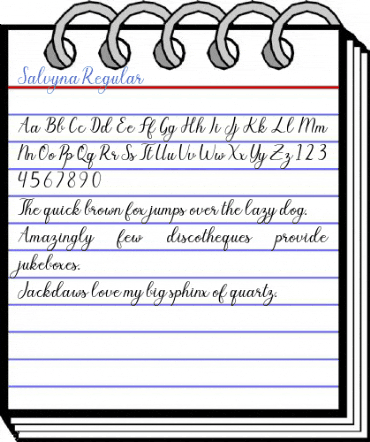 Salvyna Regular
Aa Bb Cc Dd Ee Ff Gg Hh Ii Jj Kk Ll Mm
Nn Oo Pp Qq Rr Ss Tt Uu Vv Ww Xx Yy Zz 1 2 3
4 5 6 7 8 9 0
The quick brown fox jumps over the lazy dog.
Amazingly few discotheques provide
jukeboxes.
Jackdaws love my big sphinx of quartz.